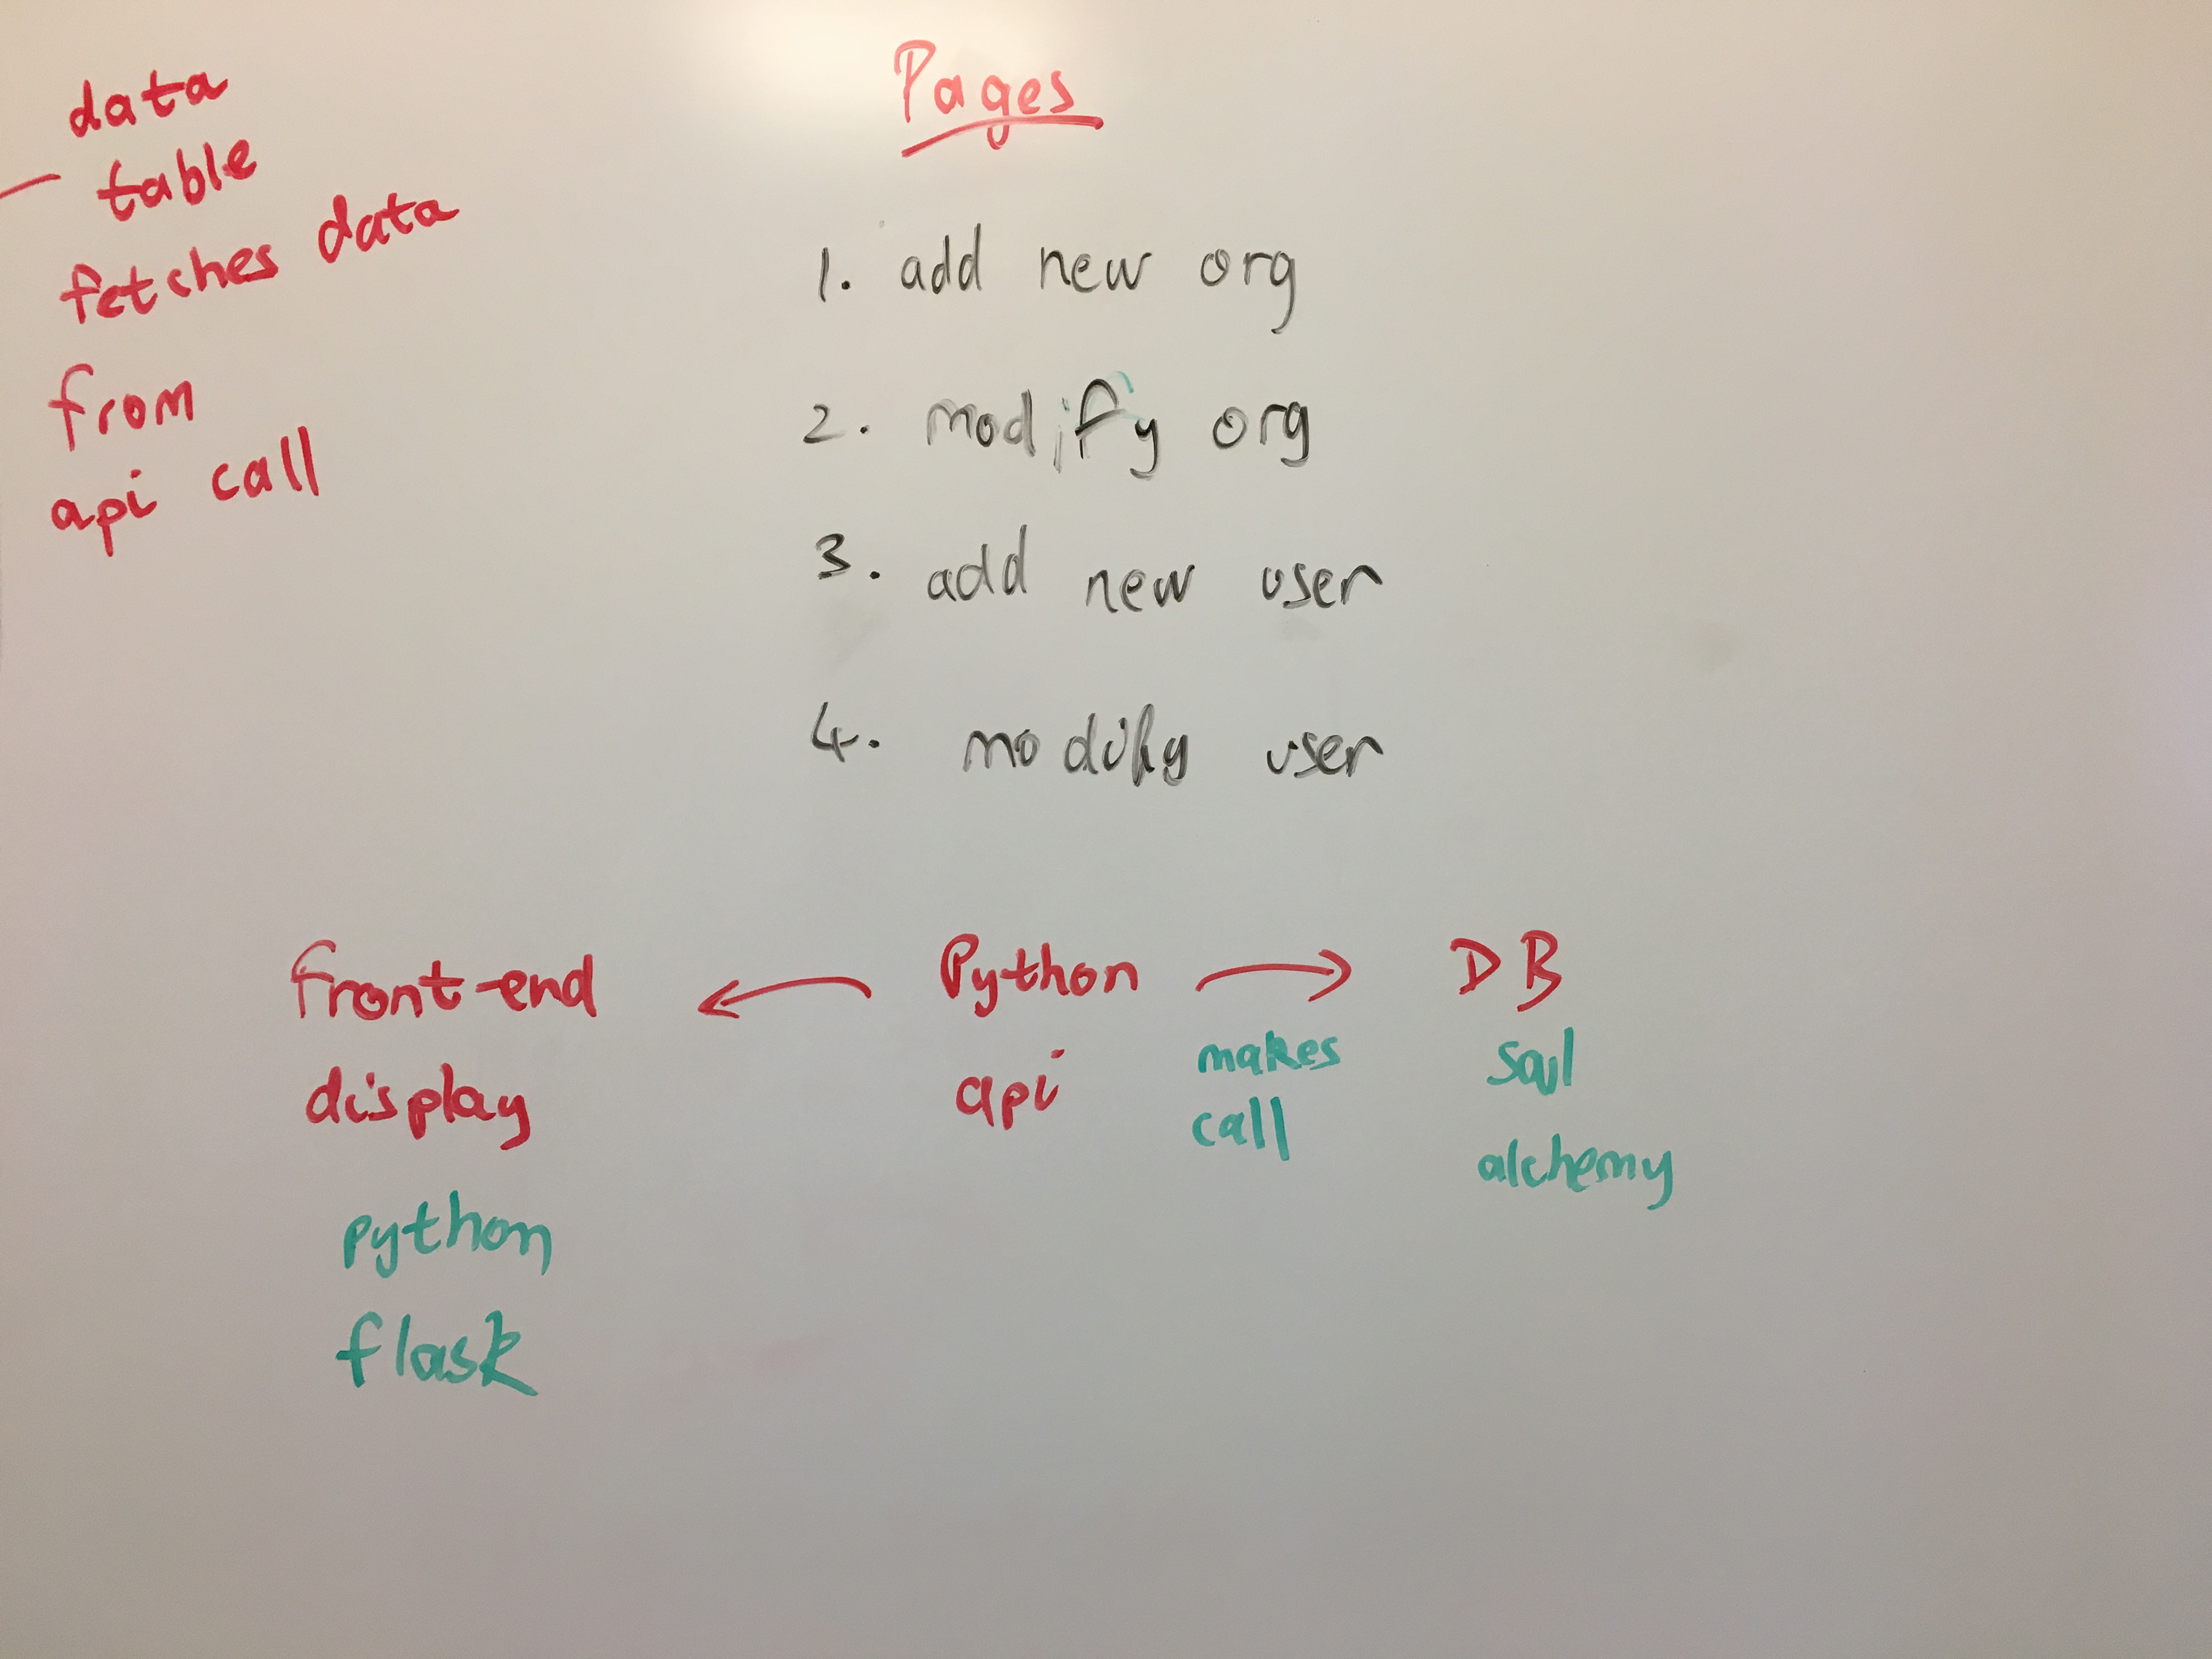 data
table
fetches data
from
api call
Pages
1. add new org
2. modify org
3. add new user
4. modify user
front-end
display
python
flask
Python
api
makes
call
DB
sql
alchemy